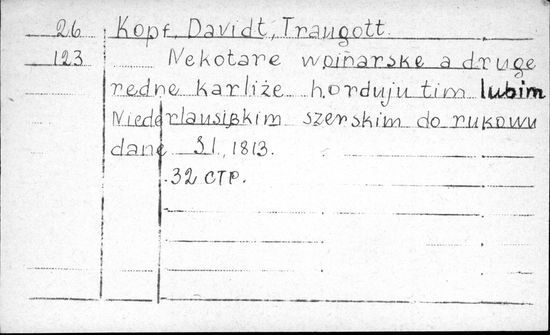 26 Kopf, Davidt, Traugott.
123 Nekotare woinarske a druge
redne karliže horduju tim lubim
Niederlausiskim szerskim do rukowu
dane S.l., 1813.
32 стр.